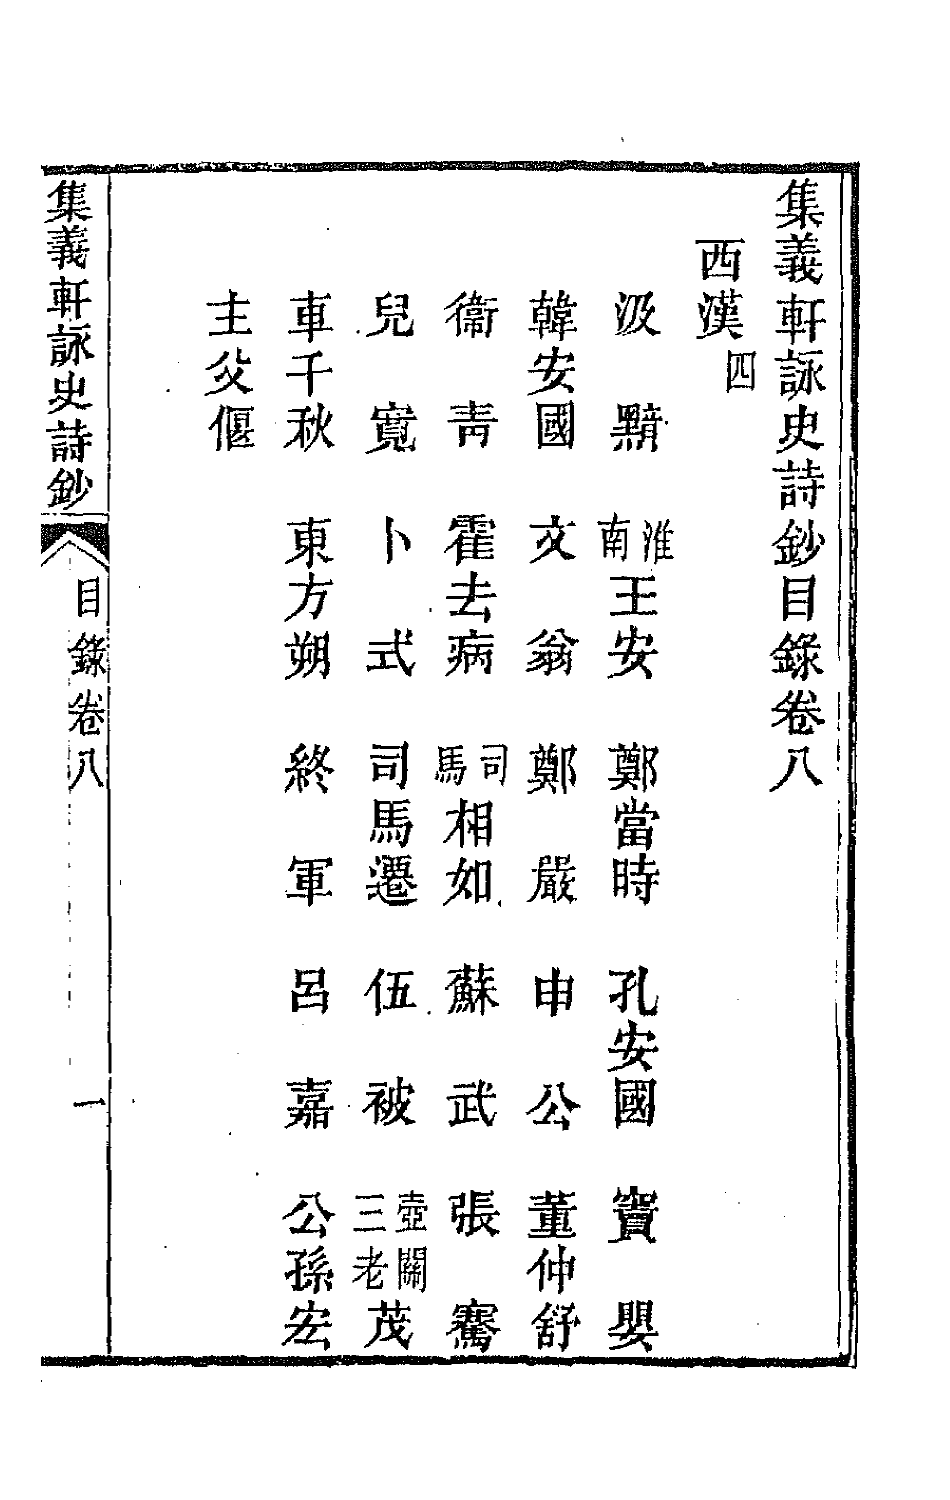 集義軒詠史詩鈔目錄卷八
西漢四
汲黯 淮南王安 鄭當時 孔安國 竇嬰
韓安國 文翁 鄭嚴 申公 董仲舒
衞青 霍去病 司馬相如 蘇武 張騫
兒寬 卜式 司馬遷 伍被 壺關三老茂
車千秋 東方朔 終軍 呂嘉 公孫宏
主父偃
集義軒詠史詩鈔 目錄卷八 一